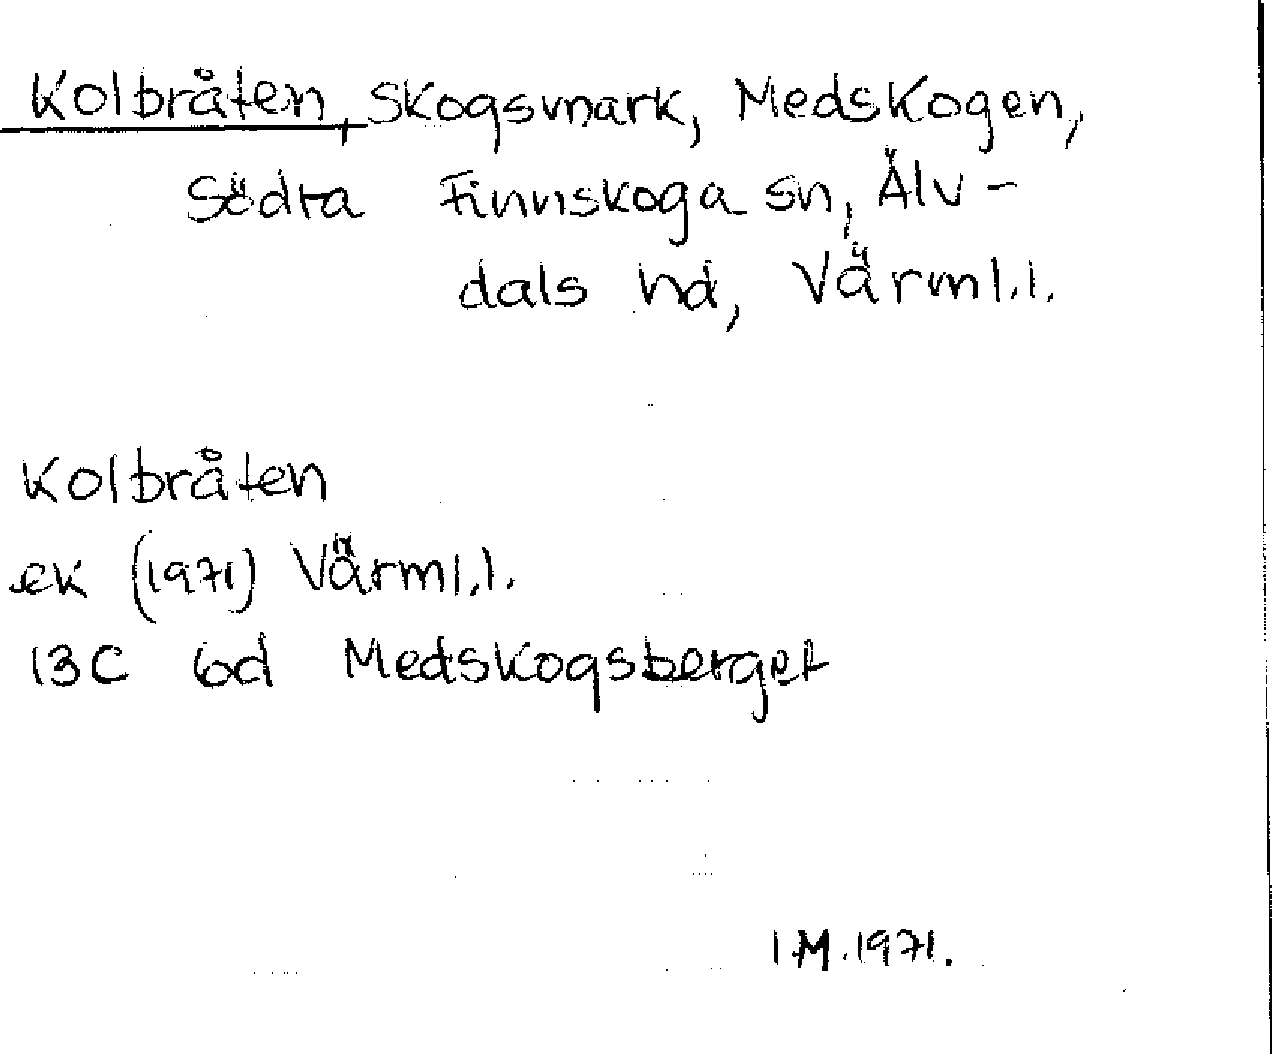 Kolbråten, Skogsmark, Medskogen,
Södra Finnskoga sn, Älv-
dals hd, Värml.l.
Kolbråten
ek (1971) Värml.l.
13C 6d Medskogsberget
I.M. 1971.